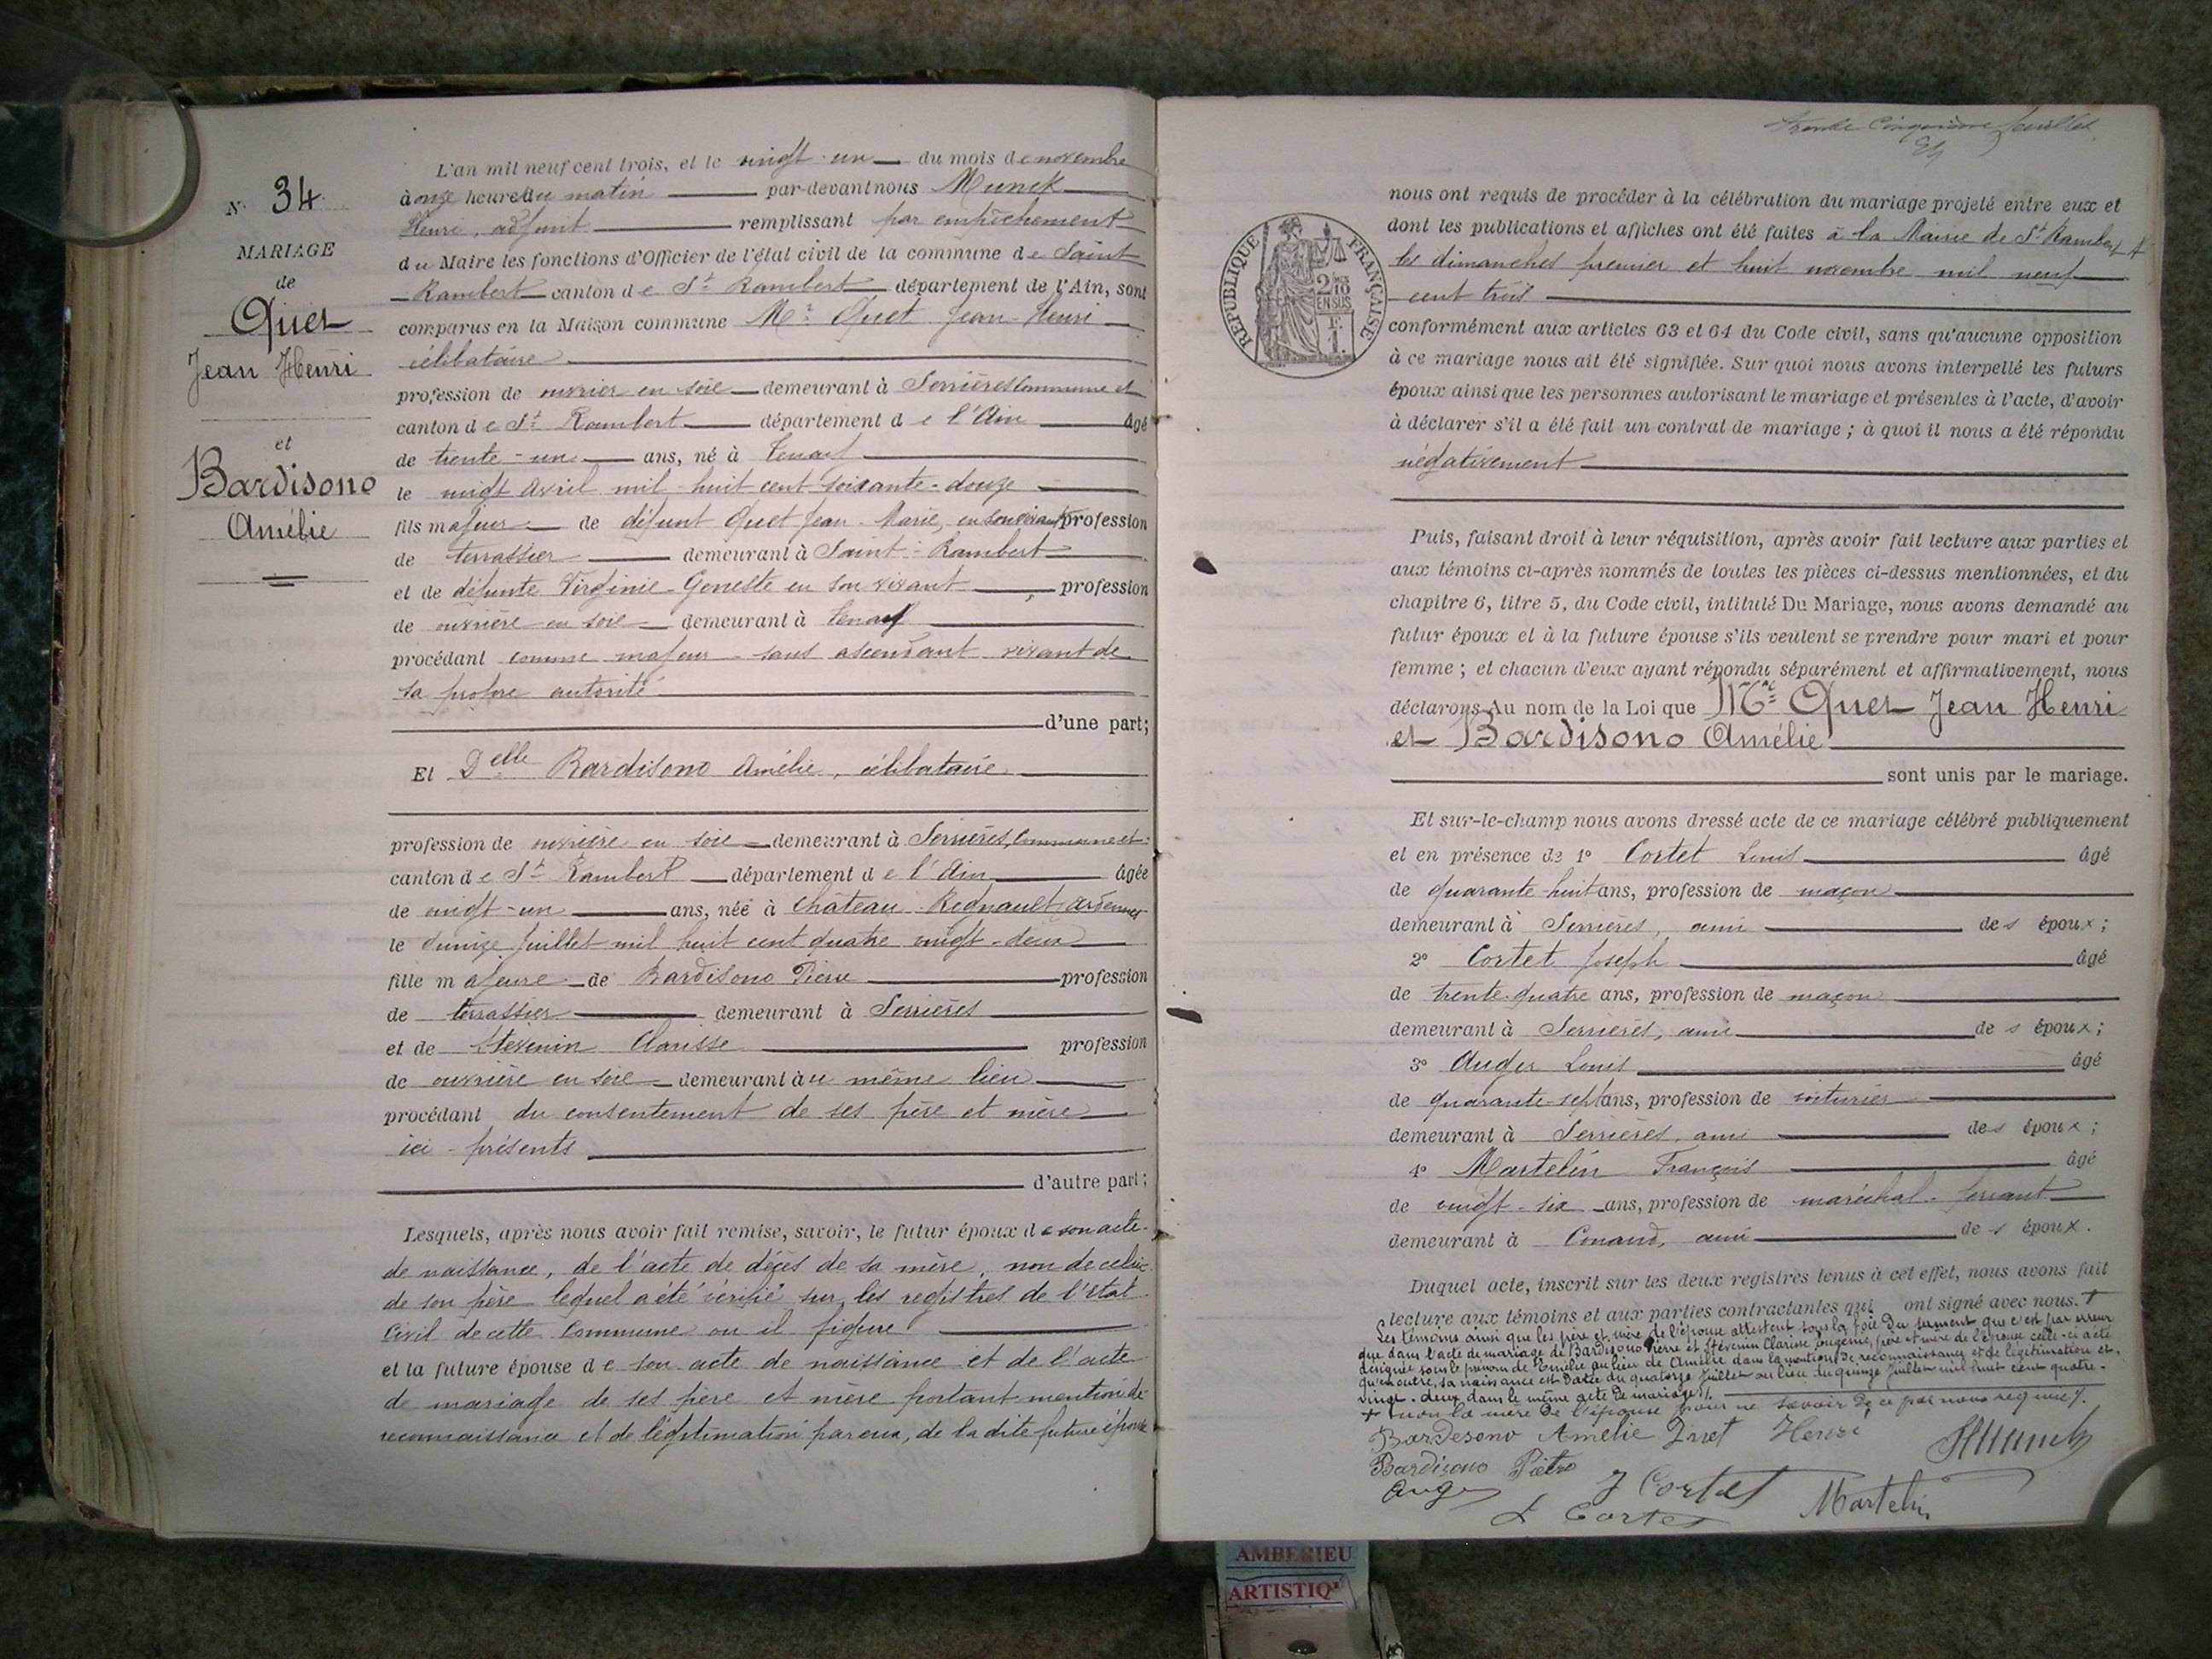 N° 34
MARIAGE
de
Quet
Jean Henri
et
Bardisono
Amélie
L'an mil neuf cent trois, et le vingt-un du mois de novembre
à onze heures du matin par-devant nous Munck
Henri, adjoint remplissant par empêchement
du Maire les fonctions d'Officier de l'état civil de la commune de Saint
Rambert canton de St Rambert département de l'Ain, sont
comparus en la Maison commune Mr Quet Jean-Henri
célibataire
profession de ouvrier en soie demeurant à Serrières Commune et
canton de St Rambert département de l'Ain âgé
de trente-un ans, né à Tenay
le vingt avril mil huit cent soixante-douze
fils majeur de défunt Quet Jean-Marie, en son vivant profession
de terrassier demeurant à Saint-Rambert
et de défunte Virginie Goneste en son vivant, profession
de ouvrière en soie demeurant à Tenay
procédant comme majeur sans ascendant vivant de
sa propre autorité
d'une part;
Et Delle Bardisono Amélie, célibataire
profession de ouvrière en soie demeurant à Serrières, Commune et
canton de St Rambert département de l'Ain âgée
de vingt-un ans, née à Château-Regnault Ardennes
le quinze Juillet mil huit cent quatre vingt-deux
fille majeure de Bardisono Pierre profession
de terrassier demeurant à Serrières
et de Stévenin Clarisse profession
de ouvrière en soie demeurant au même lieu
procédant du consentement de ses père et mère
ici-présents
d'autre part;
Lesquels, après nous avoir fait remise, savoir, le futur époux de son acte
de naissance, de l'acte de décès de sa mère, non de celui
de son père lequel a été vérifié sur les registres de l'état
Civil de cette Commune ou il figure
et la future épouse de son acte de naissance et de l'acte
de mariage de ses père et mère portant mention de
reconnaissance et de légitimation par eux, de la dite future épouse
trente cinquième feuillet
RÉPUBLIQUE FRANÇAISE
2/10 EN SUS
F. 1.
nous ont requis de procéder à la célébration du mariage projeté entre eux et
dont les publications et affiches ont été faites à la Mairie de St Rambert
les dimanches premier et huit novembre mil neuf
cent trois
conformément aux articles 63 et 64 du Code civil, sans qu'aucune opposition
à ce mariage nous ait été signifiée. Sur quoi nous avons interpellé les futurs
époux ainsi que les personnes autorisant le mariage et présentes à l'acte, d'avoir
à déclarer s'il a été fait un contrat de mariage ; à quoi il nous a été répondu
négativement
Puis, faisant droit à leur réquisition, après avoir fait lecture aux parties et
aux témoins ci-après nommés de toutes les pièces ci-dessus mentionnées, et du
chapitre 6, titre 5, du Code civil, intitulé Du Mariage, nous avons demandé au
futur époux et à la future épouse s'ils veulent se prendre pour mari et pour
femme ; et chacun d'eux ayant répondu séparément et affirmativement, nous
déclarons Au nom de la Loi que Mr Quet Jean Henri
et Bardisono Amélie
sont unis par le mariage.
Et sur-le-champ nous avons dressé acte de ce mariage célébré publiquement
et en présence de 1° Cortet Louis âgé
de quarante-huit ans, profession de maçon
demeurant à Serrières, ami des époux ;
2° Cortet Joseph âgé
de trente-quatre ans, profession de maçon
demeurant à Serrières, ami des époux ;
3° Auger Louis âgé
de quarante-sept ans, profession de voiturier
demeurant à Serrières, ami des époux ;
4° Martelin François âgé
de vingt-six ans, profession de maréchal-ferrant
demeurant à Conand, ami des époux.
Duquel acte, inscrit sur les deux registres tenus à cet effet, nous avons fait
lecture aux témoins et aux parties contractantes qui ont signé avec nous. +
Les témoins ainsi que les père et mère de l'épouse attestent sous la foie du serment que c'est par erreur
que dans l'acte de mariage de Bardisono Pierre et Stévenin Clarisse Eugénie, père et mère de l'épouse celle-ci a été
désignée sous le prénom de Emélie au lieu de Amélie dans la mention de reconnaissance et de légitimation et,
qu'en outre, sa naissance est datée du quatorze Juillet au lieu du quinze Juillet mil huit cent quatre-
vingt-deux dans le même acte de mariage.
+ non la mère de l'épouse pour ne savoir de ce par nous requise.
Bardesono Amélie Quet Henri HMunck
Bardisono Pietro
Auger J Cortet Martelin
L Cortet
AMBERIEU
ARTISTIQ